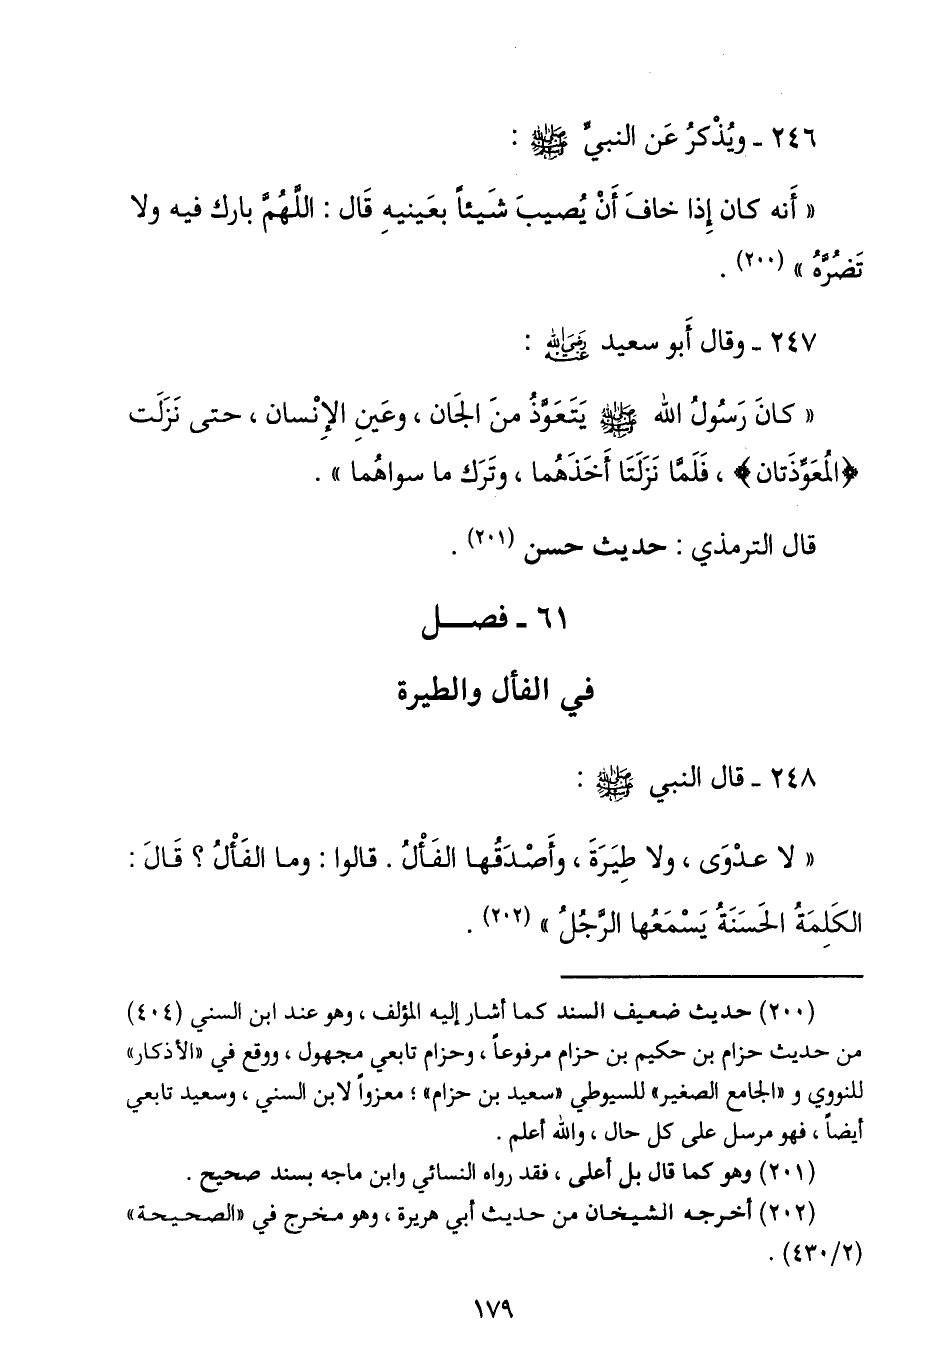 ٢٤٦ ـ ويُذْكرُ عَن النبيِّ ﷺ :
« أَنه كان إِذا خافَ أَنْ يُصيبَ شَيئاً بعَينيهِ قَال : اللَّهُمَّ بارك فيه ولا
تَضُرَّهُ » (٢٠٠) .
٢٤٧ ـ وقال أَبو سعيد رضي الله عنه :
« كانَ رَسُولُ الله ﷺ يَتَعَوَّذُ منَ الجَان ، وعَينِ الإِنْسان ، حتى نَزَلَت
﴿المُعَوِّذَتان﴾ ، فَلَمَّا نَزَلَتَا أَخَذَهُما ، وتَرَك ما سواهُما » .
قال الترمذي : حديث حسن (٢٠١) .
٦١ ـ فصــل
في الفأل والطيرة
٢٤٨ ـ قال النبي ﷺ :
« لا عدْوَى ، ولا طِيَرَةَ ، وأَصْدَقُها الفَأْلُ . قالوا : وما الفَأْلُ ؟ قَالَ :
الكَلِمَةُ الحَسَنَةُ يَسْمَعُها الرَّجُلُ » (٢٠٢) .
(٢٠٠) حديث ضعيف السند كما أشار إليه المؤلف ، وهو عند ابن السني (٤٠٤)
من حديث حزام بن حكيم بن حزام مرفوعاً ، وحزام تابعي مجهول ، ووقع في «الأذكار»
للنووي و «الجامع الصغير» للسيوطي «سعيد بن حزام» ؛ معزواً لابن السني ، وسعيد تابعي
أيضاً ، فهو مرسل على كل حال ، والله أعلم .
(٢٠١) وهو كما قال بل أعلى ، فقد رواه النسائي وابن ماجه بسند صحيح .
(٢٠٢) أخرجه الشيخان من حديث أبي هريرة ، وهو مخرج في «الصحيحة»
(٤٣٠/٢) .
١٧٩